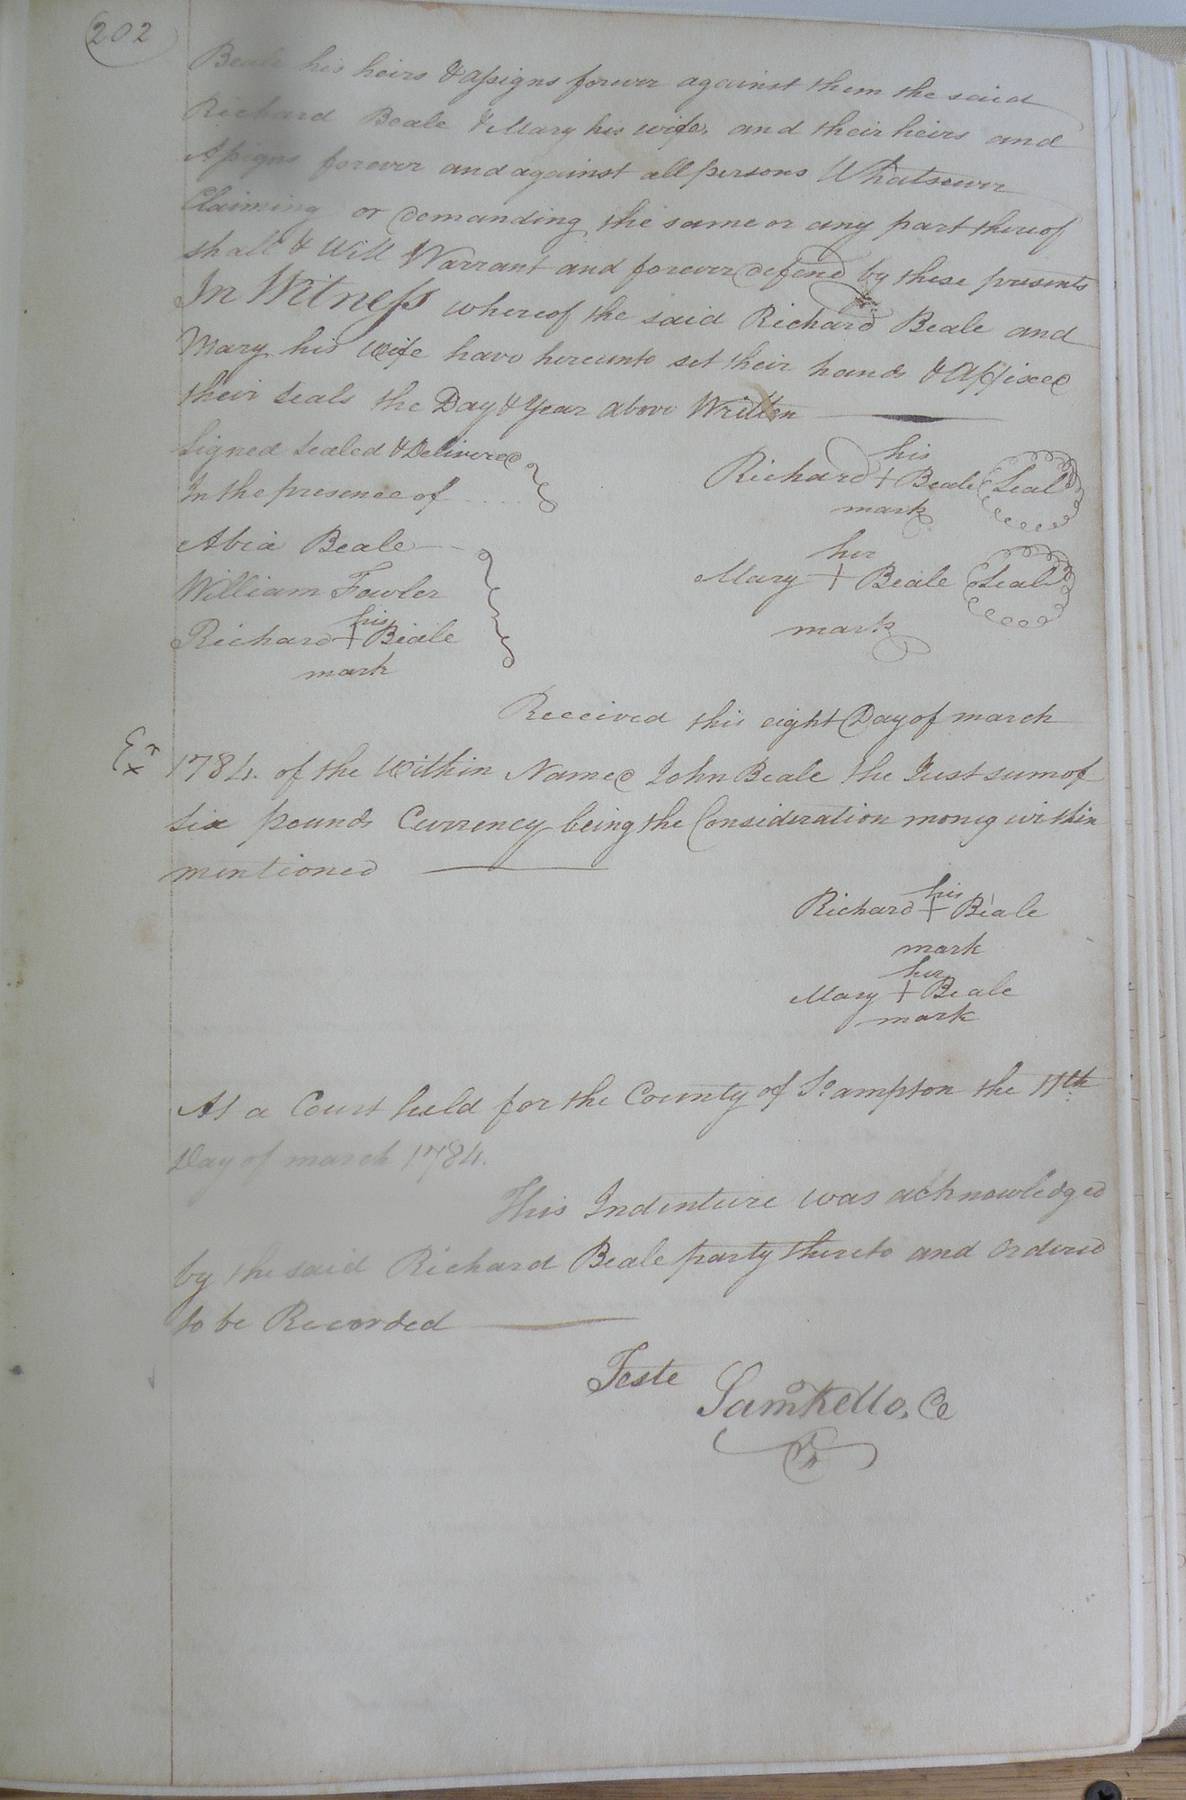 202
Beale his heirs & assigns forever against them the said
Richard Beale & Mary his wife, and their heirs and
Assigns forever and against all persons Whatsoever
Claiming or demanding the same or any part thereof
shall & Will Warrant and forever defend by these presents
In Witness whereof the said Richard Beale and
Mary his Wife have hereunto set their hands & Affixed
their seals the Day & Year above Written
Signed Sealed & Delivered
In the presence of
his
Richard + Beale Seal
mark
Abia Beale
William Fowler
his
Richard + Beale
mark
her
Mary + Beale Seal
mark
Received this eight Day of march
Ex
1784. of the Within Named John Beale the Just sum of
six pounds Currency being the Consideration money within
mentioned
his
Richard + Beale
mark
her
Mary + Beale
mark
At a Court held for the County of So. ampton the 11th
Day of march 1784.
This Indenture was acknowledged
by the said Richard Beale party thereto and Ordered
to be Recorded
Teste
Sam Kello, Ce